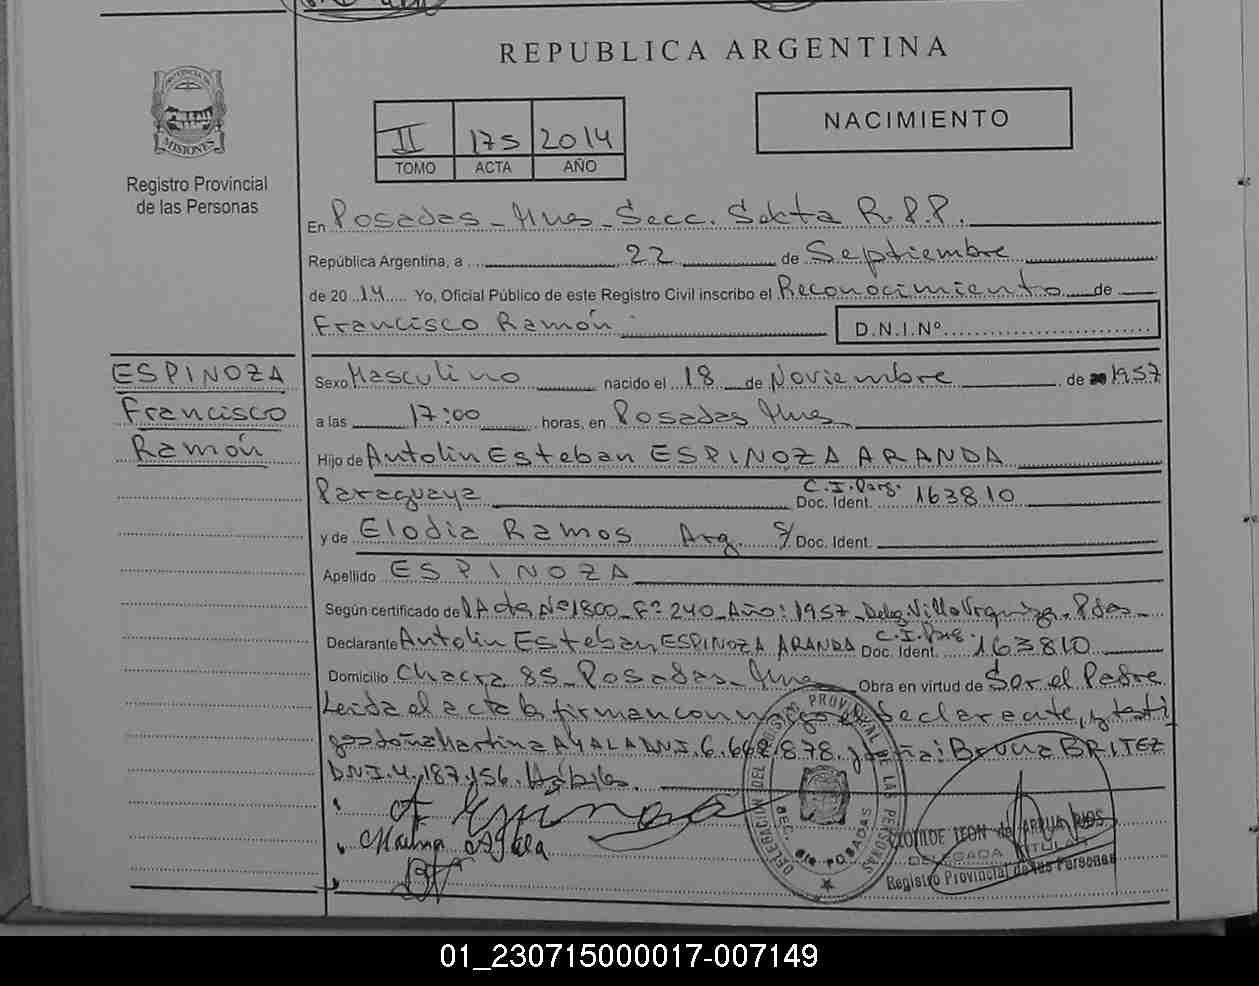 REPUBLICA ARGENTINA
PROVINCIA DE
MISIONES
Registro Provincial
de las Personas
II 175 2014
TOMO ACTA AÑO
NACIMIENTO
En Posadas - Mnes - Secc. Sexta R.P.P.
República Argentina, a 22 de Septiembre
de 2014 Yo, Oficial Público de este Registro Civil inscribo el Reconocimiento de
Francisco Ramón D.N.I.Nº
ESPINOZA
Francisco
Ramón
Sexo Masculino nacido el 18 de Noviembre de 1957
a las 17:00 horas, en Posadas Mnes
Hijo de Antolin Esteban ESPINOZA ARANDA
Paraguaya C.I.Parg. Doc. Ident. 163810
y de Elodia Ramos Arg. S/ Doc. Ident.
Apellido ESPINOZA
Según certificado de Acta Nº 1800 - Fº 240 - Año: 1957 - Deleg. Villa Urquiza - Pdas -
Declarante Antolin Esteban ESPINOZA ARANDA C.I.Parg. Doc. Ident. 163810
Domicilio Chacra 85 - Posadas - Mnes Obra en virtud de Ser el Padre
Leida el acta la firman conmigo el declarante, y testi
gos doña Martina AYALA DNI. 6.642.878. y doña: Bruna BRITEZ
DNI. 4.187.156. Hábiles.
DELEGACION DEL REGISTRO PROVINCIAL DE LAS PERSONAS
SEC. 6ta POSADAS
CLOTILDE LEON de
DELEGADA TITULAR
Registro Provincial de las Personas
01_230715000017-007149